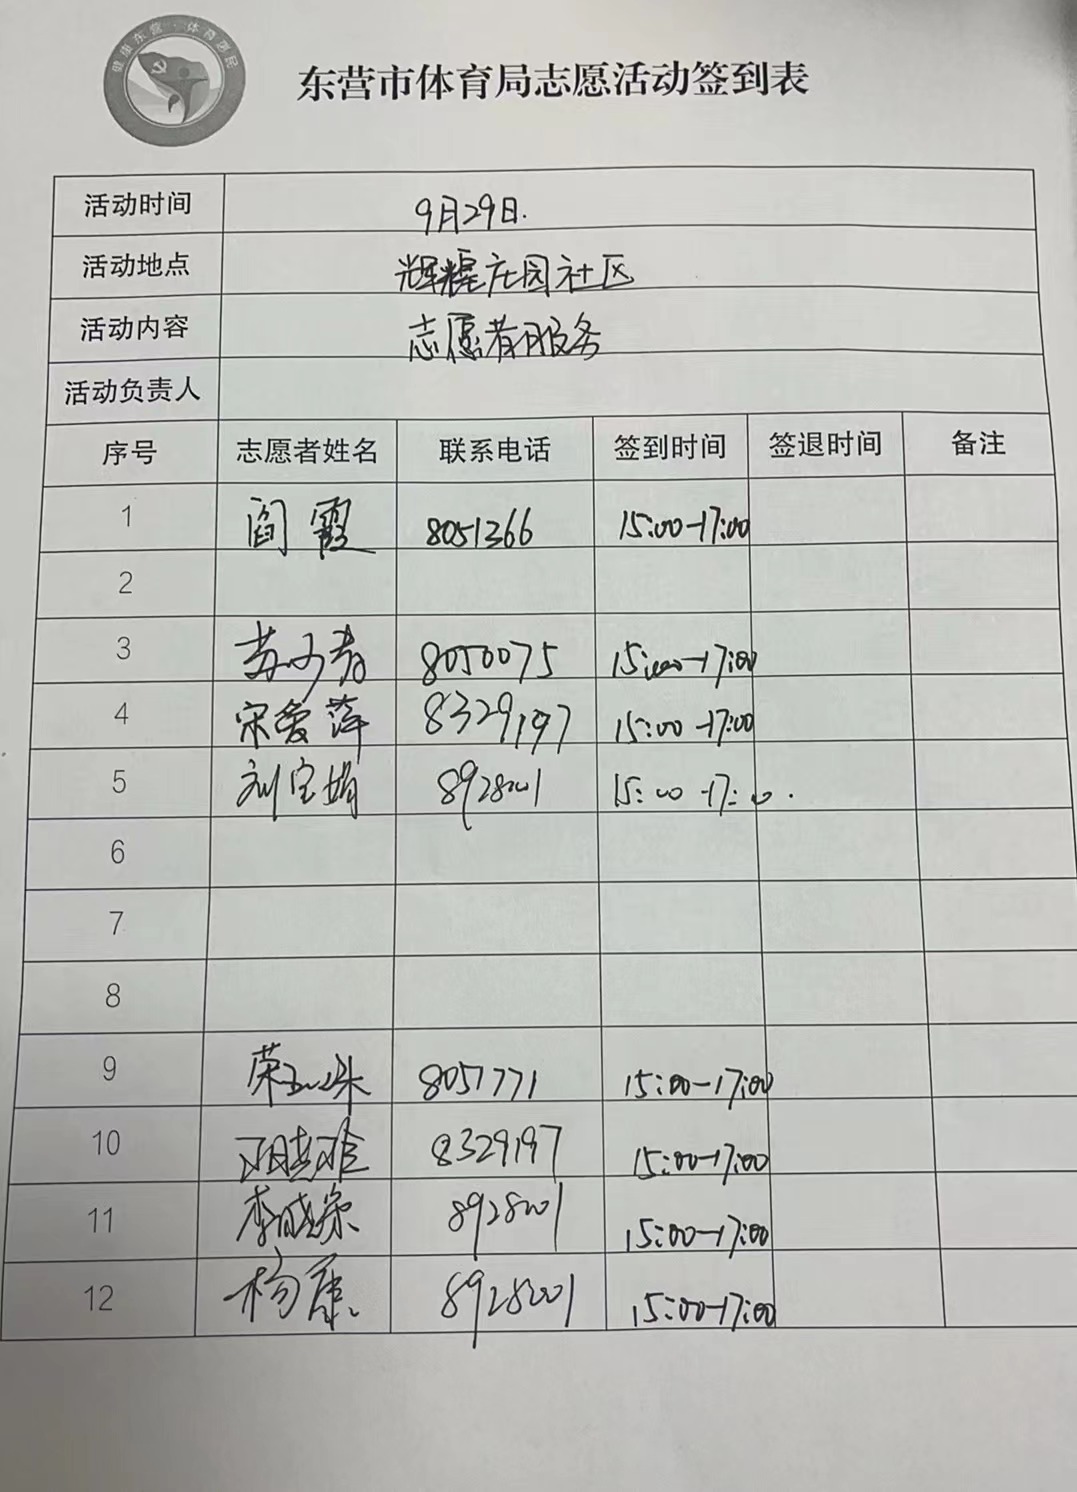 健康东营·体育惠民
东营市体育局志愿活动签到表
活动时间 9月29日.
活动地点 辉耀庄园社区
活动内容 志愿者服务
活动负责人
序号 志愿者姓名 联系电话 签到时间 签退时间 备注
1 阎霞 8051366 15:00-17:00
2
3 8050075 15:00-17:00
4 宋爱萍 8329197 15:00-17:00
5 刘宝娟 8928001 15:00-17:00.
6
7
8
9 荣玉珠 8051771 15:00-17:00
10 8329197 15:00-17:00
11 李晓荣 8928001 15:00-17:00
12 杨康 8928001 15:00-17:00